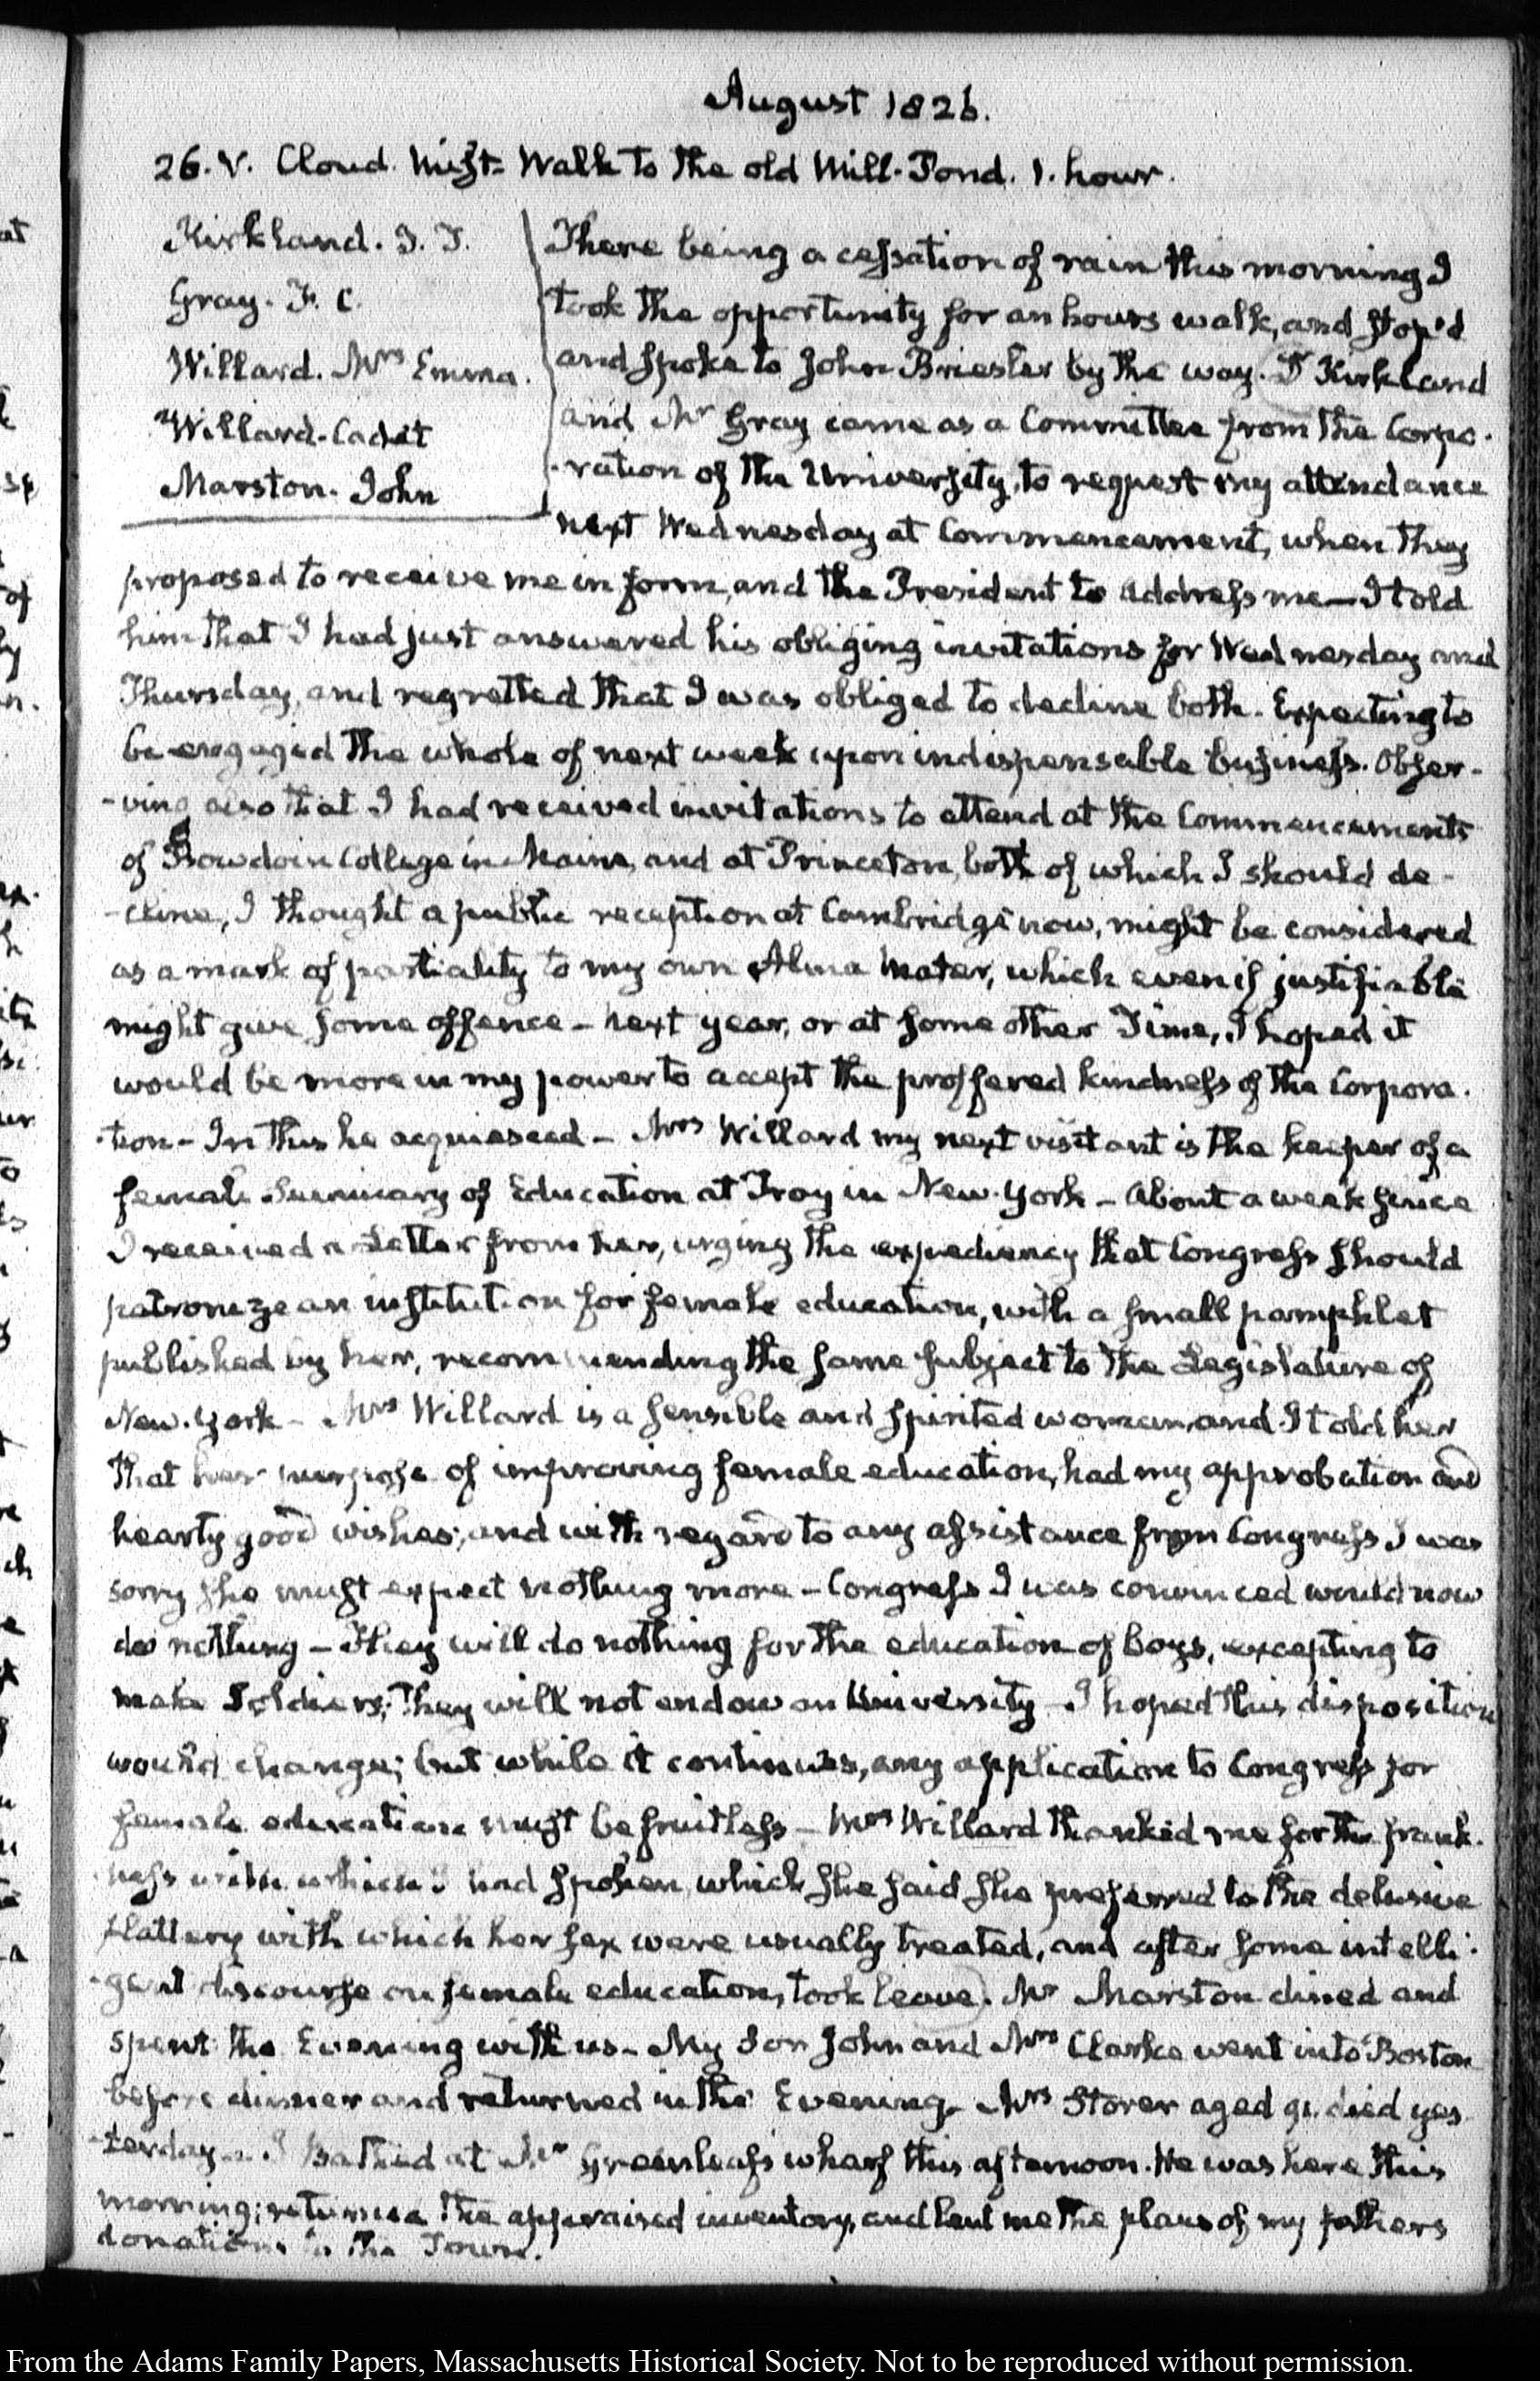 August 1826.
26. V. Cloud. Mist. Walk to the old Mill-Pond. 1. hour.
Kirkland. J. T.
Gray. F. C.
Willard. Mrs Emma.
Willard-Cadet
Marston. John
There being a cessation of rain this morning I
took the opportunity for an hours walk, and stop'd
and spoke to John Briesler by the way. Dr Kirkland
and Mr Gray came as a Committee from the Corpo-
-ration of the University, to request my attendance
next Wednesday at Commencement, when they
proposed to receive me in form, and the President to address me—I told
him that I had just answered his obliging invitations for Wednesday and
Thursday, and regretted that I was obliged to decline both. Expecting to
be engaged the whole of next week upon indispensable business. Obser-
-ving also that I had received invitations to attend at the Commencements
of Bowdoin College in Maine, and at Princeton, both of which I should de-
-cline, I thought a public reception at Cambridge now, might be considered
as a mark of partiality to my own Alma Mater, which even if justifiable
might give some offence - next year, or at some other Time, I hoped it
would be more in my power to accept the proffered kindness of the Corpora-
-tion - In this he acquiesced - Mrs Willard my next visitant is the keeper of a
female Seminary of Education at Troy in New-York - About a week since
I received a Letter from her, urging the expediency that Congress should
patronize an institution for female education, with a small pamphlet
published by her, recommending the same subject to the Legislature of
New-York - Mrs Willard is a sensible and spirited woman, and I told her
that her purpose of improving female education, had my approbation and
hearty good wishes; and with regard to any assistance from Congress I was
sorry she must expect nothing more - Congress I was convinced would now
do nothing - They will do nothing for the education of boys, excepting to
make Soldiers; They will not endow an University - I hoped this disposition
would change; but while it continues, any application to Congress for
female education must be fruitless - Mrs Willard thanked me for the frank-
ness with which I had spoken, which she said she preferred to the delusive
flattery with which her sex were usually treated, and after some intelli-
-gent discourse on female education, took leave. Mr Marston dined and
spent the Evening with us - My Son John and Mrs Clarke went into Boston
before dinner and returned in the Evening - Mrs Storer aged 91. died yes-
-terday - I bathed at Mr Greenleaf's wharf this afternoon. He was here this
morning; returned the appraised inventory, and lent me the plans of my fathers
donations to the Town.
From the Adams Family Papers, Massachusetts Historical Society. Not to be reproduced without permission.